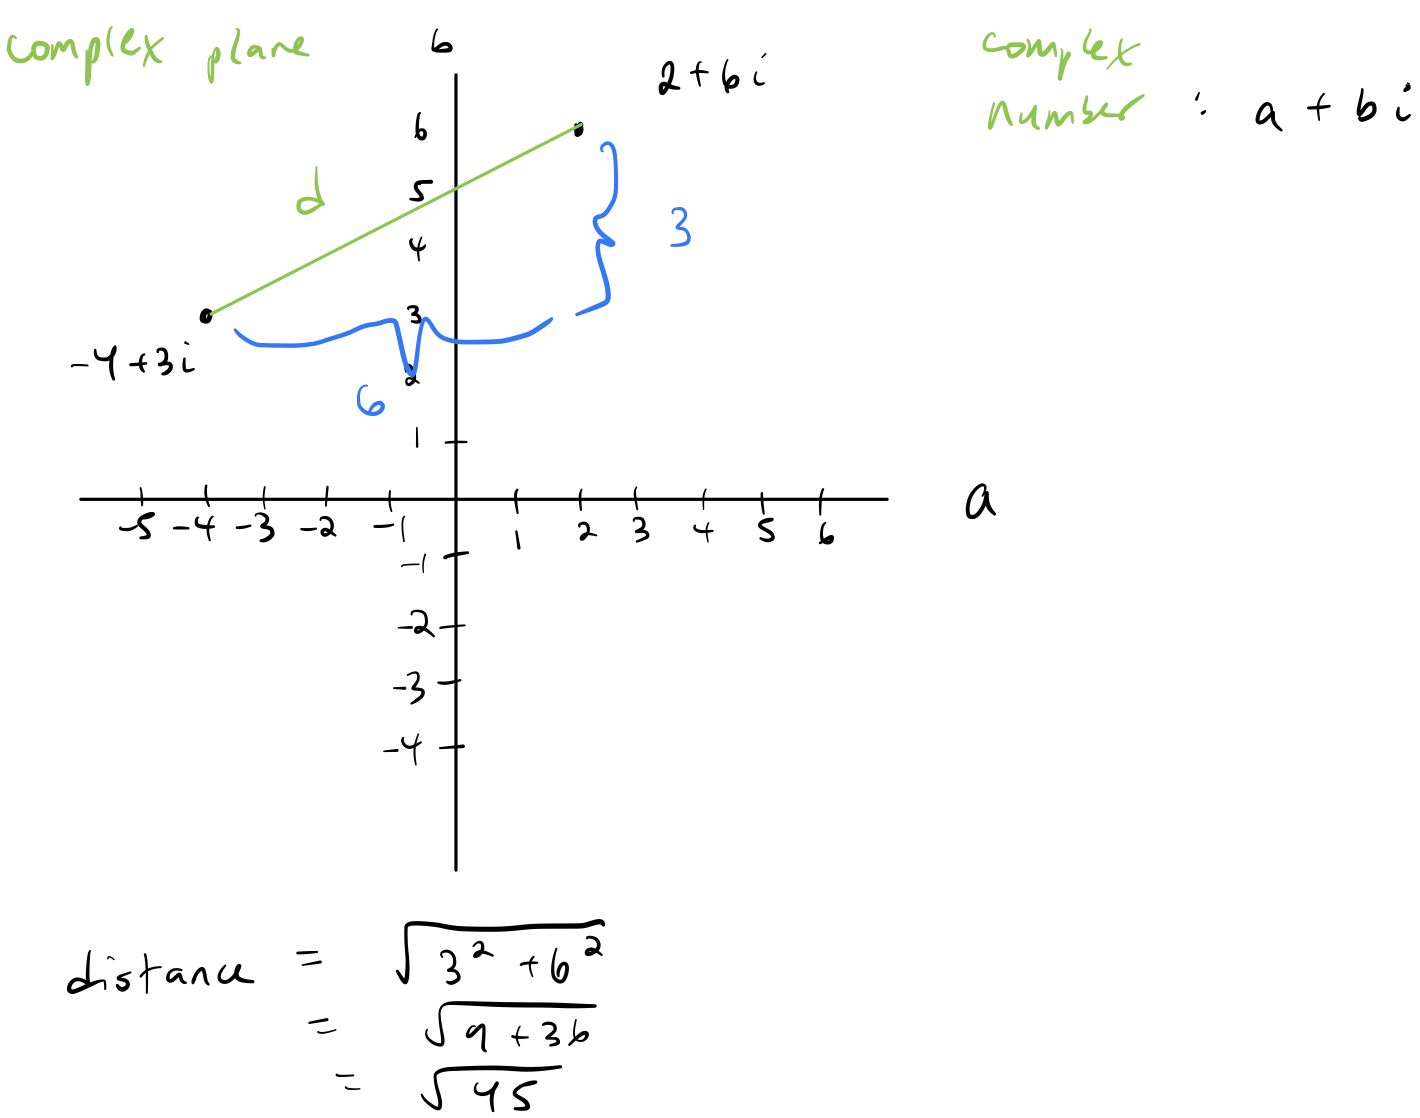 complex plane
b
2 + 6i
complex
number : a + bi
6
5
d
4
3
3
-4+3i
2
6
1
a
-5 -4 -3 -2 -1 1 2 3 4 5 6
-1
-2
-3
-4
distance = √(3² + 6²)
= √(9 + 36)
= √45